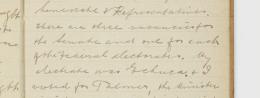 Senorate & Representatives,
there are three necessaries for
the Senate and one for each
of the federal electorates. My
electorate was Echuca & I
voted for Palmer, the minister